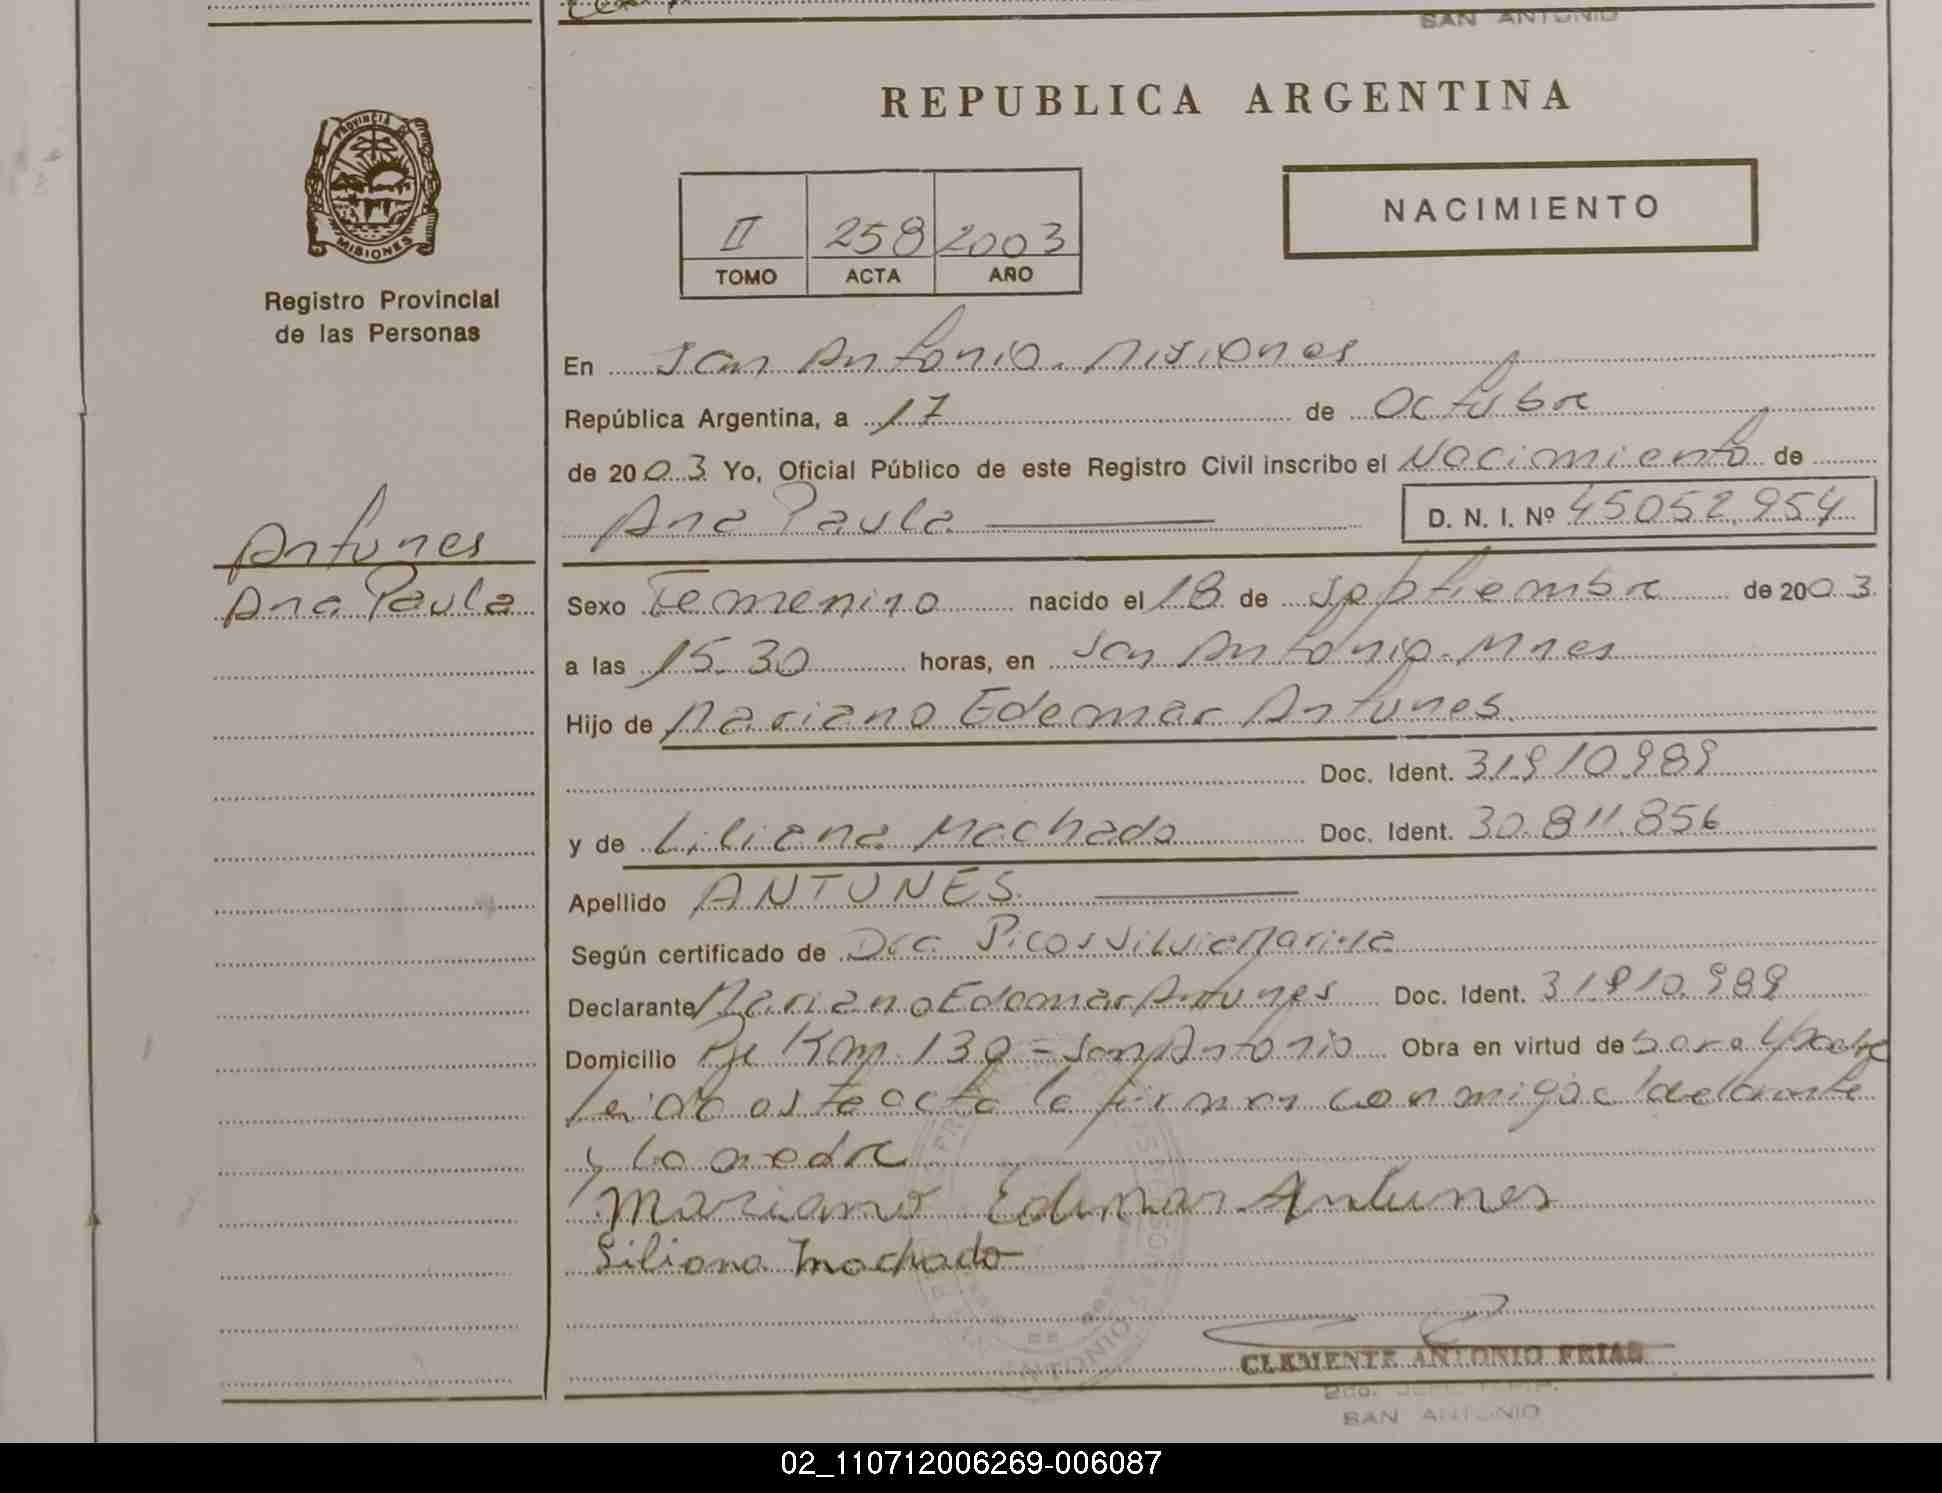 SAN ANTONIO
REPUBLICA ARGENTINA
PROVINCIA DE
MISIONES
Registro Provincial
de las Personas
II 258 2003
TOMO ACTA AÑO
NACIMIENTO
En San Antonio. Misiones
República Argentina, a 17 de Octubre
de 2003 Yo, Oficial Público de este Registro Civil inscribo el Nacimiento de
Ana Paula D. N. I. Nº 45052.954
Antunes
Ana Paula
Sexo Femenino nacido el 18 de Septiembre de 2003
a las 15.30 horas, en San Antonio-Mnes
Hijo de Mariano Edemar Antunes
Doc. Ident. 31910.989
y de Liliana Machado Doc. Ident. 30.811.856
Apellido ANTUNES
Según certificado de Dra Picos Silvia Marina
Declarante Mariano Edemar Antunes Doc. Ident. 31910.989
Domicilio Pje Km. 130 - San Antonio Obra en virtud de
leido este acta la firman conmigo el declarante
y la madre
Mariano Edemar Antunes
Liliana Machado
CLEMENTE ANTONIO FRIAS
SAN ANTONIO
02_110712006269-006087